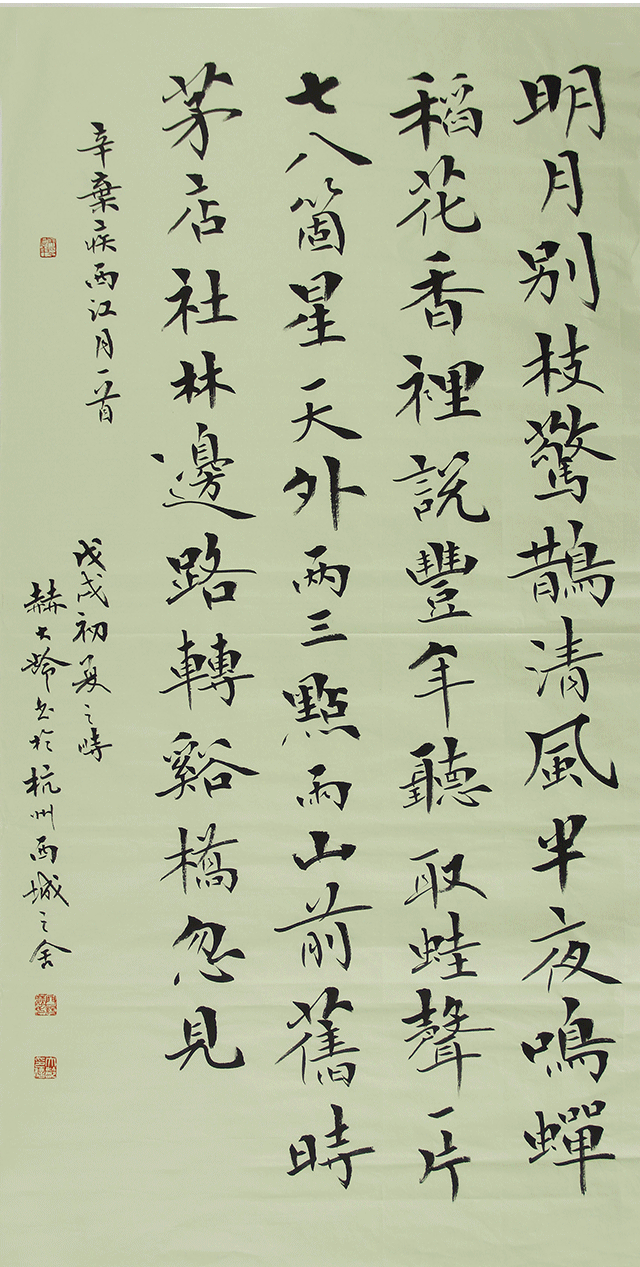 明月别枝驚鵲清風半夜鳴蟬
稻花香裡説豐年聽取蛙聲一片
七八箇星天外兩三點雨山前舊時
茅店社林邊路轉谿橋忽見
辛棄疾西江月一首
戊戌初夏之時
赫大龄书於杭州西城之舍